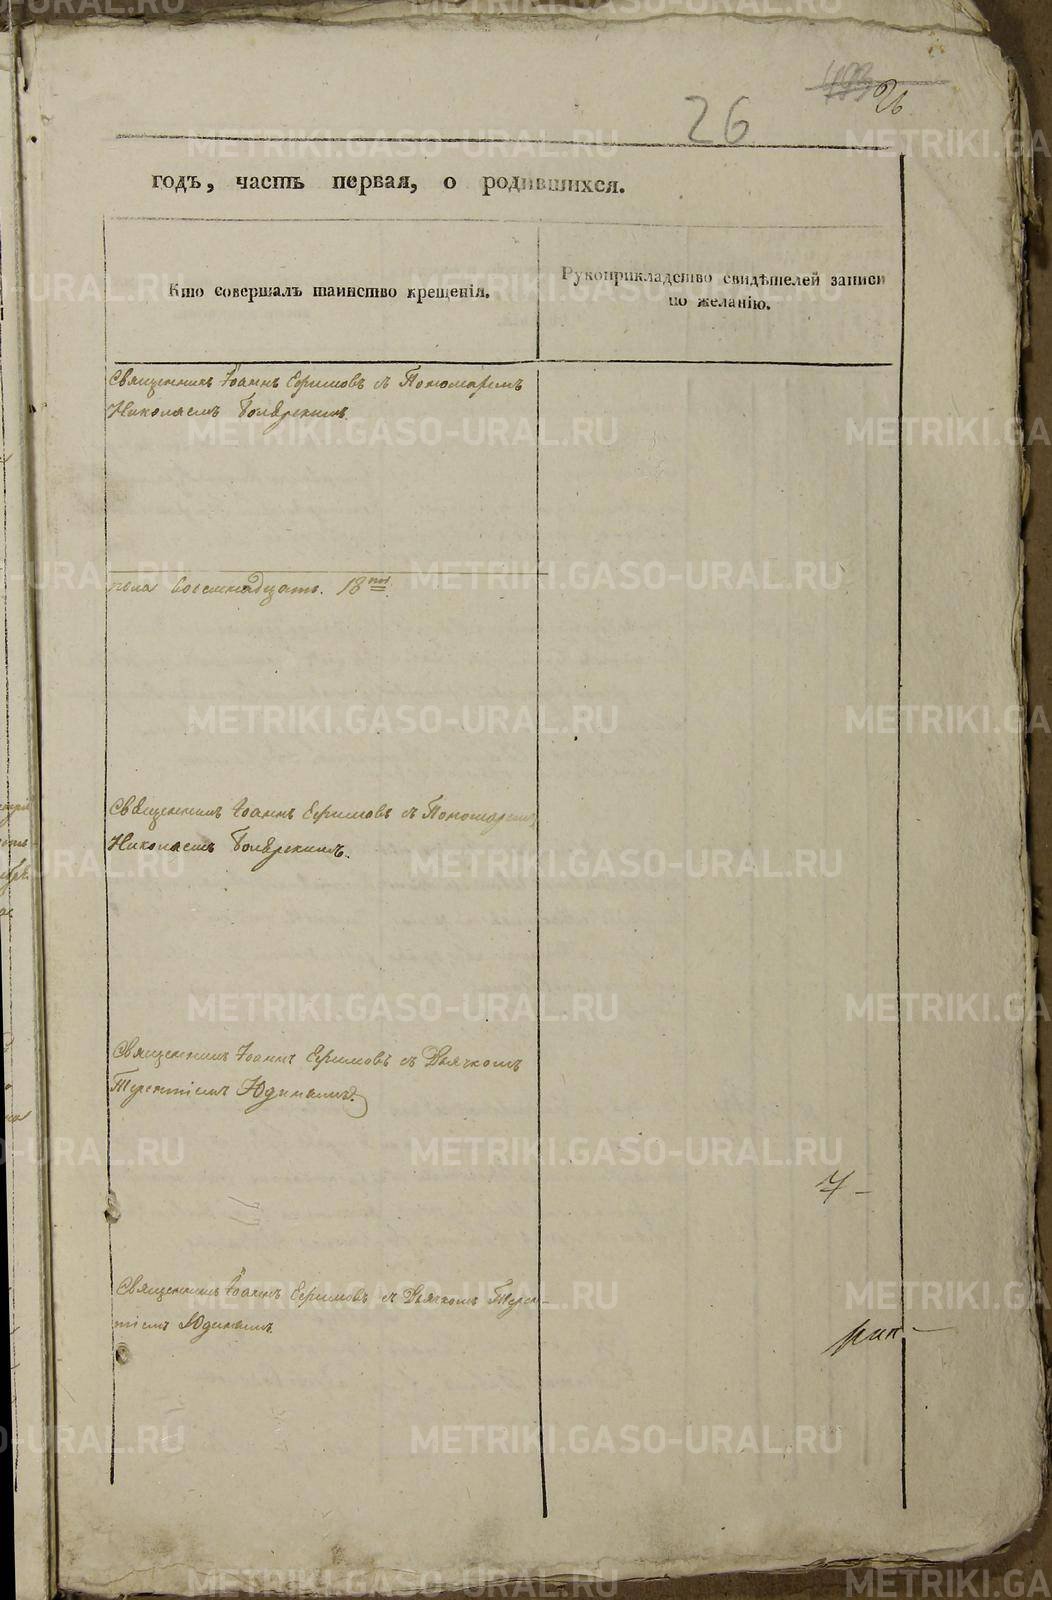 26
26
годъ, часть первая, о родившихся.
Кто совершалъ таинство крещенія.
Рукоприкладство свидѣтелей записи
по желанію.
Священникъ Іоаннъ Ефимовъ съ Пономаремъ
Николаемъ
пола восемнадцать. 18
Священникъ Іоаннъ Ефимовъ съ Пономаремъ
Николаемъ
Священникъ Іоаннъ Ефимовъ съ Дьячкомъ
Терентіемъ Юдинымъ.
Священникъ Іоаннъ Ефимовъ съ Дьячкомъ Терен-
тіемъ Юдинымъ.
METRIKI.GASO-URAL.RU